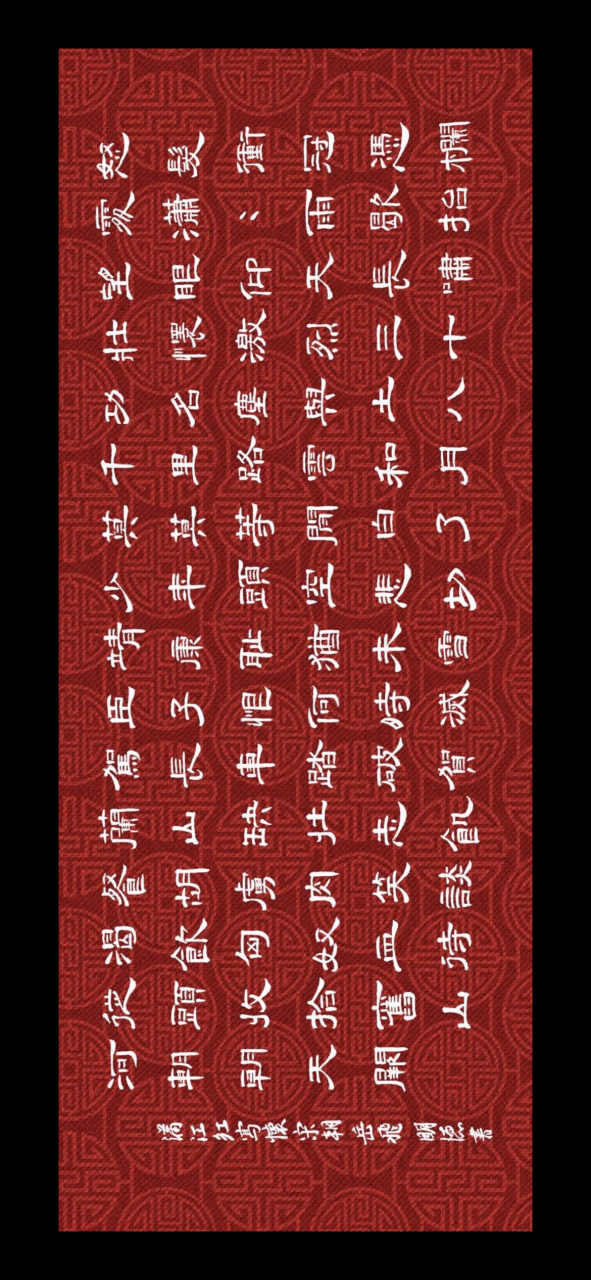 怒髮衝冠憑欄
處瀟〻雨歇抬
望眼仰天長嘯
壯懷激烈三十
功名塵與土八
千里路雲和月
莫莫等閒白了
少年頭空悲切
靖康恥猶未雪
臣子恨何時滅
駕長車踏破賀
蘭山缺壯志飢
餐胡虜肉笑談
渴飲匈奴血待
從頭收拾舊山
河朝朝天闕
滿江紅寫懷 宋朝 岳飛 明德書